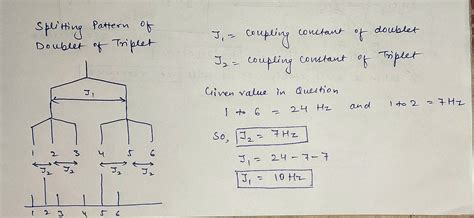 Splitting Pattern of
Doublet of Triplet
J₁
1 2 3 4 5 6
J₂ J₂ J₂ J₂
1 2 3 4 5 6
J₁ = Coupling constant of doublet
J₂ = Coupling constant of Triplet
Given value in Question
1 to 6 = 24 Hz and 1 to 2 = 7Hz
So, J₂ = 7Hz
J₁ = 24-7-7
J₁ = 10Hz